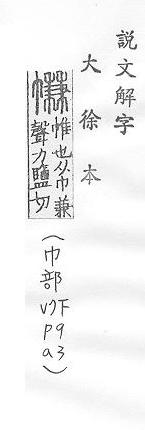 說文解字
大徐本
㡘帷也从巾兼
聲力鹽切
(巾部
V7下
P9
a3)